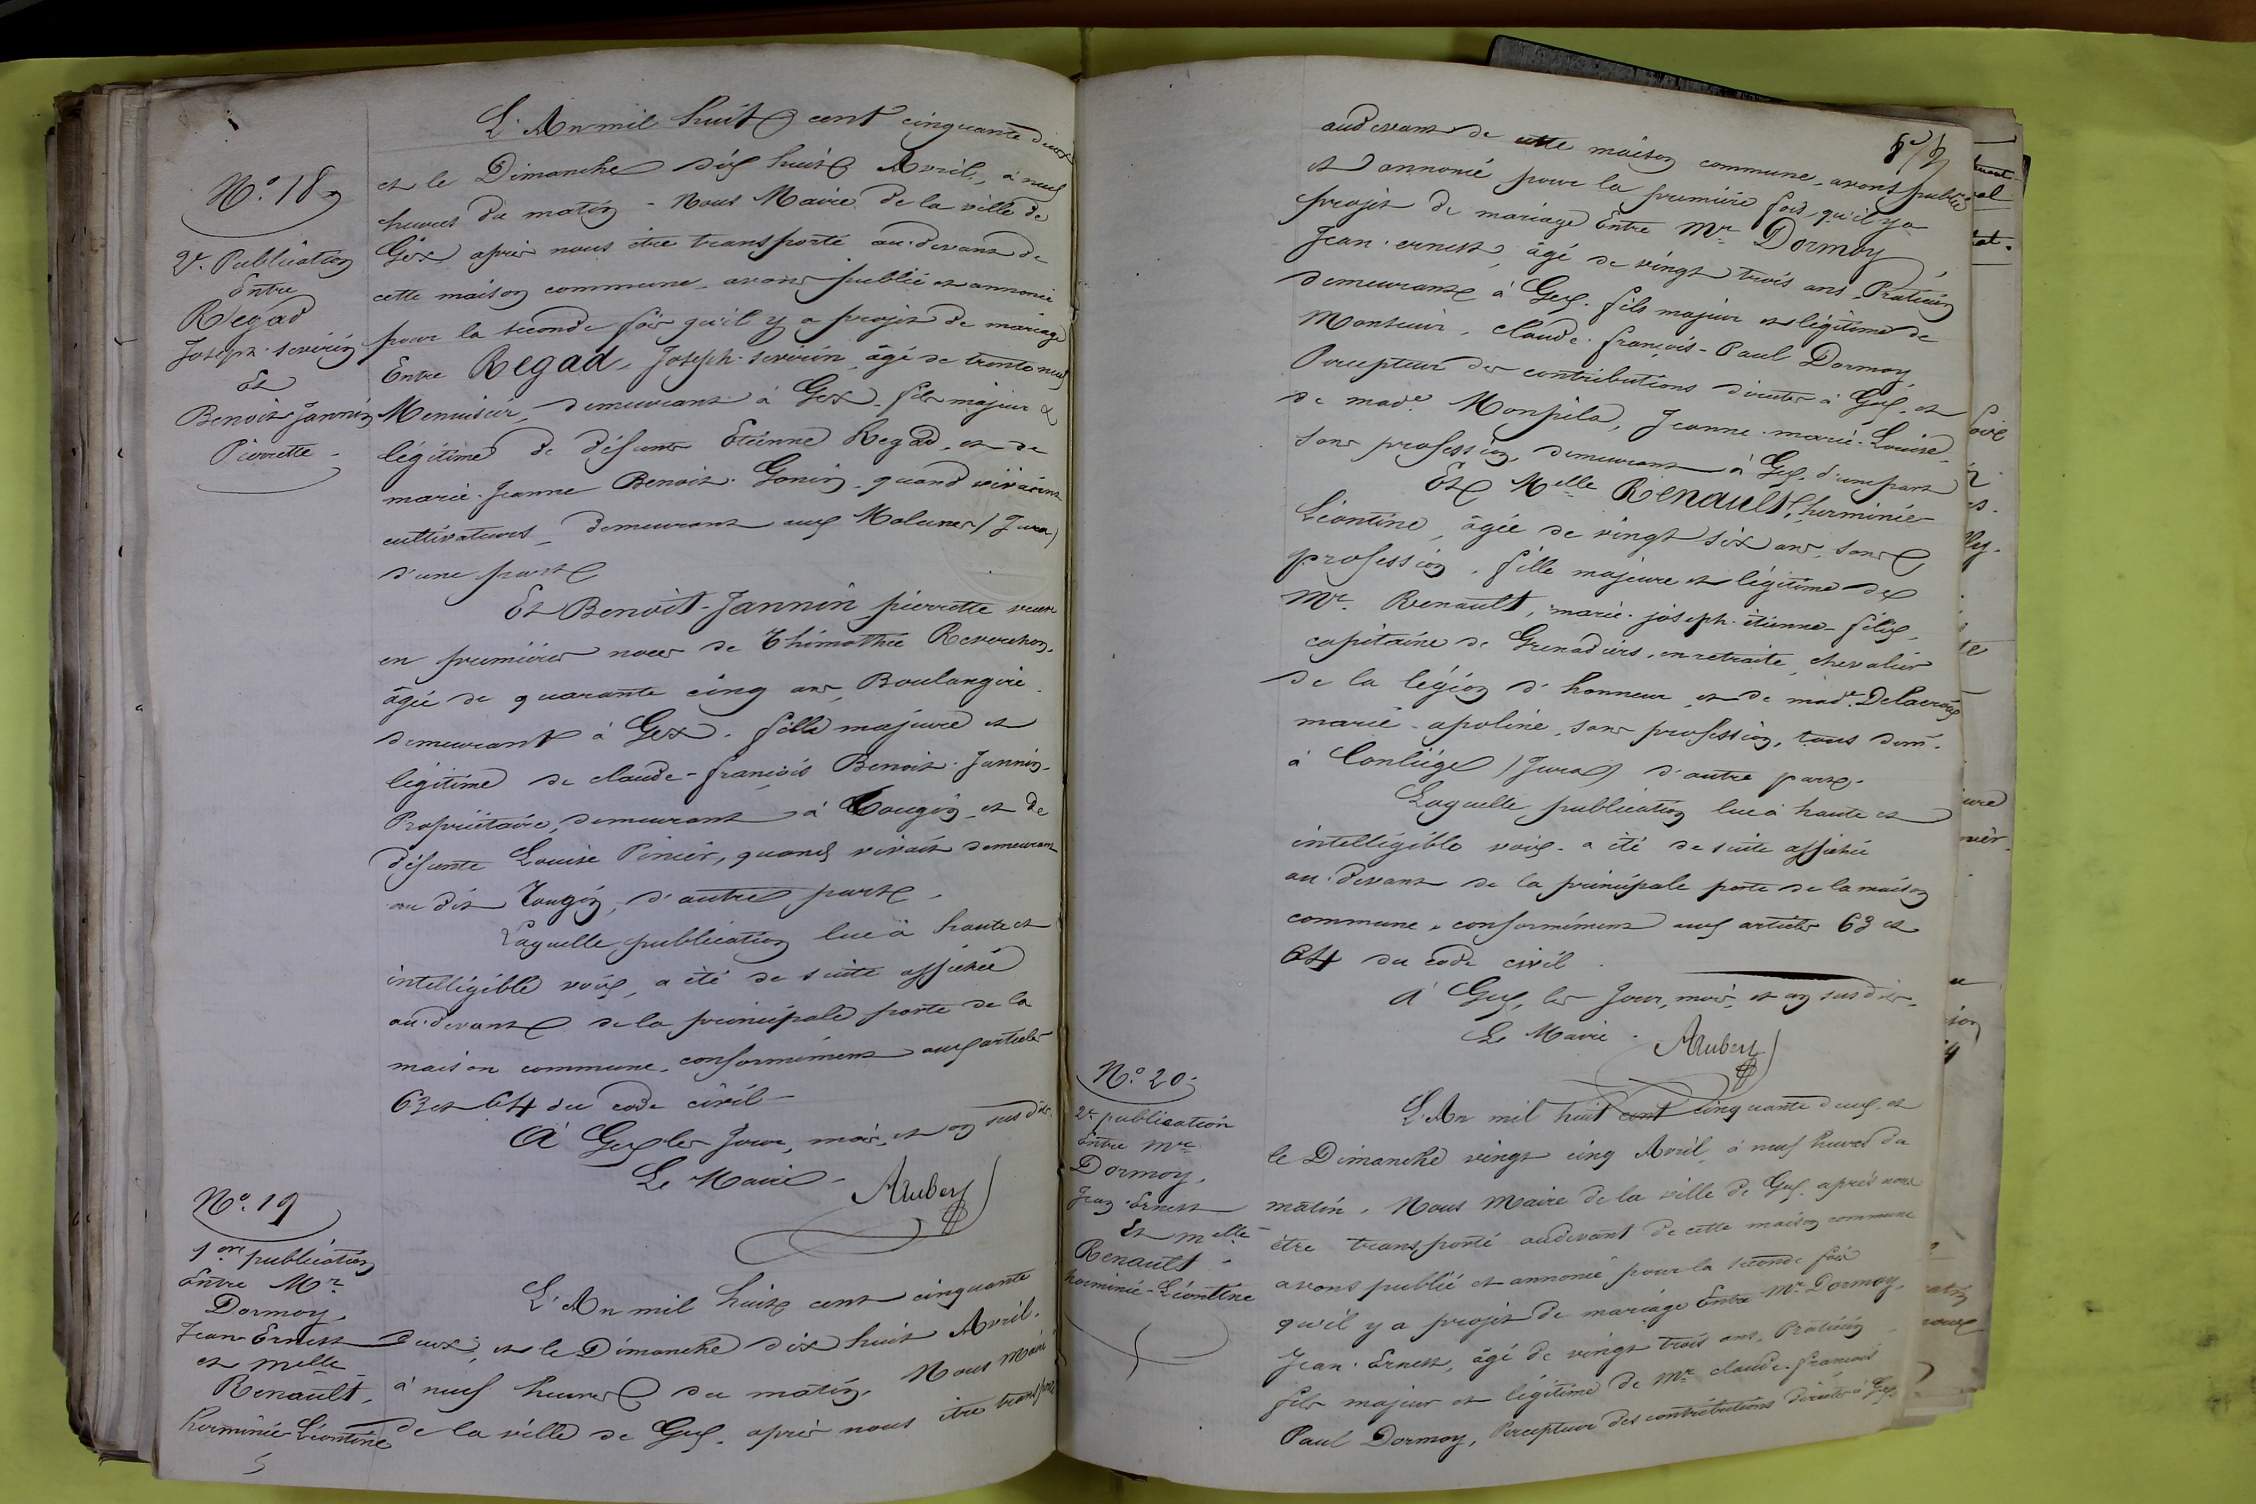 N.o 18
2e. Publication
Entre
Regad
Joseph-severin
Et
Benoit Jannin
Pierrette -
L'An mil huit cent cinquante deux
et le Dimanche dix huit Avril, à neuf
heures du matin - Nous Maire de la ville de
Gex après nous être transporté au-devant de
cette maison commune, avons publié et annoncé
pour la seconde fois qu'il y a projet de mariage
Entre Regad, Joseph-severin, âgé de trente neuf
Menuisier, demeurant à Gex, fils majeur &
légitime de défunts Etienne Regad, et de
marie-Jeanne Benoit-Gonin, quand vivaient
cultivateurs, demeurant aux Molunes (Jura)
d'une part
Et Benoit-Jannin pierrette veuve
en premières noces de Thimothée Reverchon,
âgée de quarante cinq ans, Boulangère
demeurant à Gex, fille majeure et
légitime de claude-françois Benoit-Jannin,
Propriétaire, demeurant à Tougin, et de
défunte Louise Pinier, quand vivait demeurant
au dit Tougin, d'autre part.
Laquelle publication lue à haute et
intelligible voix, a été de suite affichée
au-devant de la principale porte de la
maison commune, conformément aux articles
63 et 64 du code civil -
A Gex les Jour, mois, et an susdits.
Le Maire -
Aubery
N.o 19
1ere publication
Entre Mr
Dormoy,
Jean-Ernest
et Melle
Renault,
herminie-Léontine
L'An mil huit cent cinquante
deux, et le Dimanche dix huit Avril,
à neuf heures du matin, Nous Maire
de la ville de Gex, après nous être transporté
audevant de cette maison commune, avons publié
et annoncé pour la première fois, qu'il y a
projet de mariage Entre Mr Dormoy,
Jean-ernest, âgé de vingt trois ans, Praticien
demeurant à Gex, fils majeur et légitime de
Monsieur, claude-françois-Paul Dormoy
Percepteur des contributions directes à Gex, et
de made Monpela, Jeanne-marie-Louise
sans profession, demeurant à Gex, d'une part
Et Melle Renault, herminie-
Léontine, âgée de vingt six ans, sans
profession, fille majeure et légitime de
Mr. Renault, marie-joseph-étienne-félix,
capitaine de Grenadiers, en retraite, chevalier
de la légion d'honneur, et de made Delacroix
marie-apoline, sans profession, tous dem.
à Conliége (Jura) d'autre part.
Laquelle publication lue à haute et
intelligible voix, a été de suite affichée
au-devant de la principale porte de la maison
commune, conformément aux articles 63 et
64 du code civil.
A Gex, les Jour, mois, et an susdits.
Le Maire.
Aubery
N.o 20
2e publication
Entre Mr
Dormoy,
Jean-Ernest
Et Melle
Renault
herminie-Léontine
L'An mil huit cent cinquante deux, et
le Dimanche vingt cinq Avril, à neuf heures du
matin, Nous Maire de la ville de Gex, après nous
être transporté audevant de cette maison commune
avons publié et annoncé pour la seconde fois
qu'il y a projet de mariage Entre Mr Dormoy,
Jean-Ernest, âgé de vingt trois ans, Praticien
fils majeur et légitime de Mr claude-françois
Paul Dormoy, Percepteur des contributions directes à Gex,